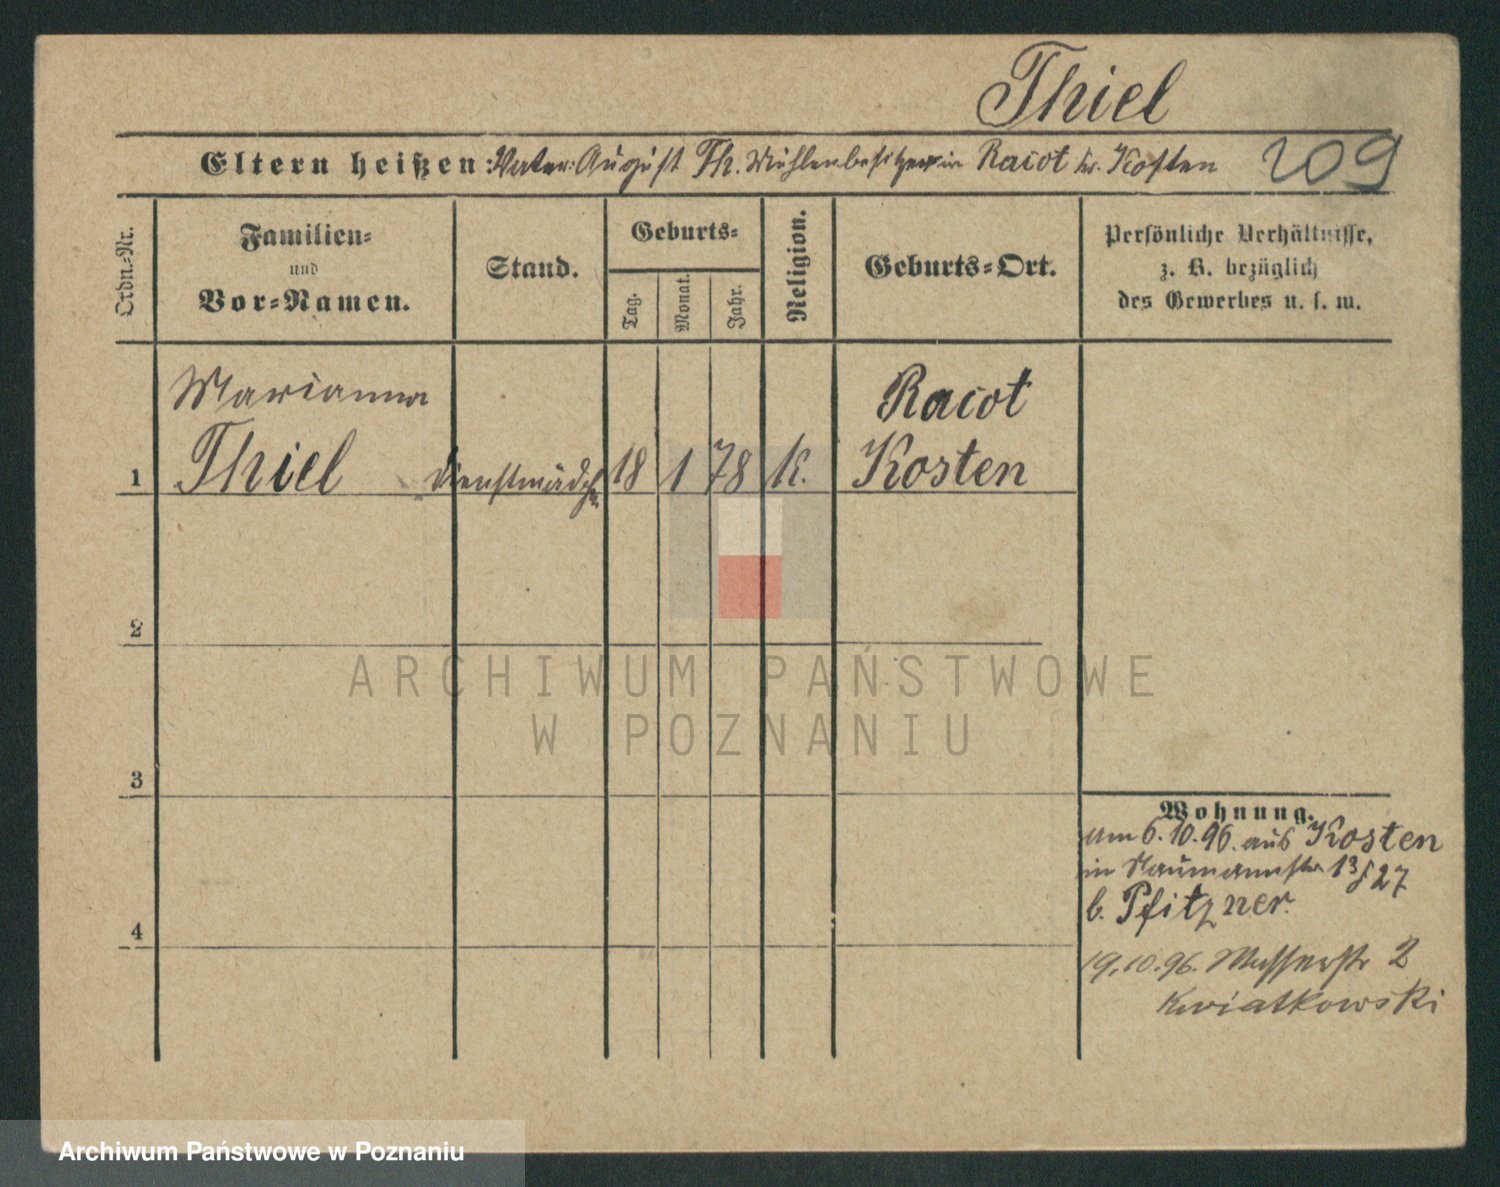 Thiel
Eltern heißen: Vater: August Th. Mühlenbesitzer in Racot Kr. Kosten 209
Ordn.-Nr.
Familien-
und
Vor-Namen.
Stand.
Geburts-
Tag.
Monat.
Jahr.
Religion.
Geburts-Ort.
Persönliche Verhältnisse,
z. B. bezüglich
des Gewerbes u. s. w.
Marianna Racot
1 Thiel Dienstmädch. 18 1 78 K. Kosten
2
3
4
Wohnung.
am 6.10.96. aus Kosten
in Naumannstr 13 27
b. Pfitzner.
19.10.96. Wasserstr 2
Kwiatkowski
ARCHIWUM PAŃSTWOWE
W POZNANIU
Archiwum Państwowe w Poznaniu